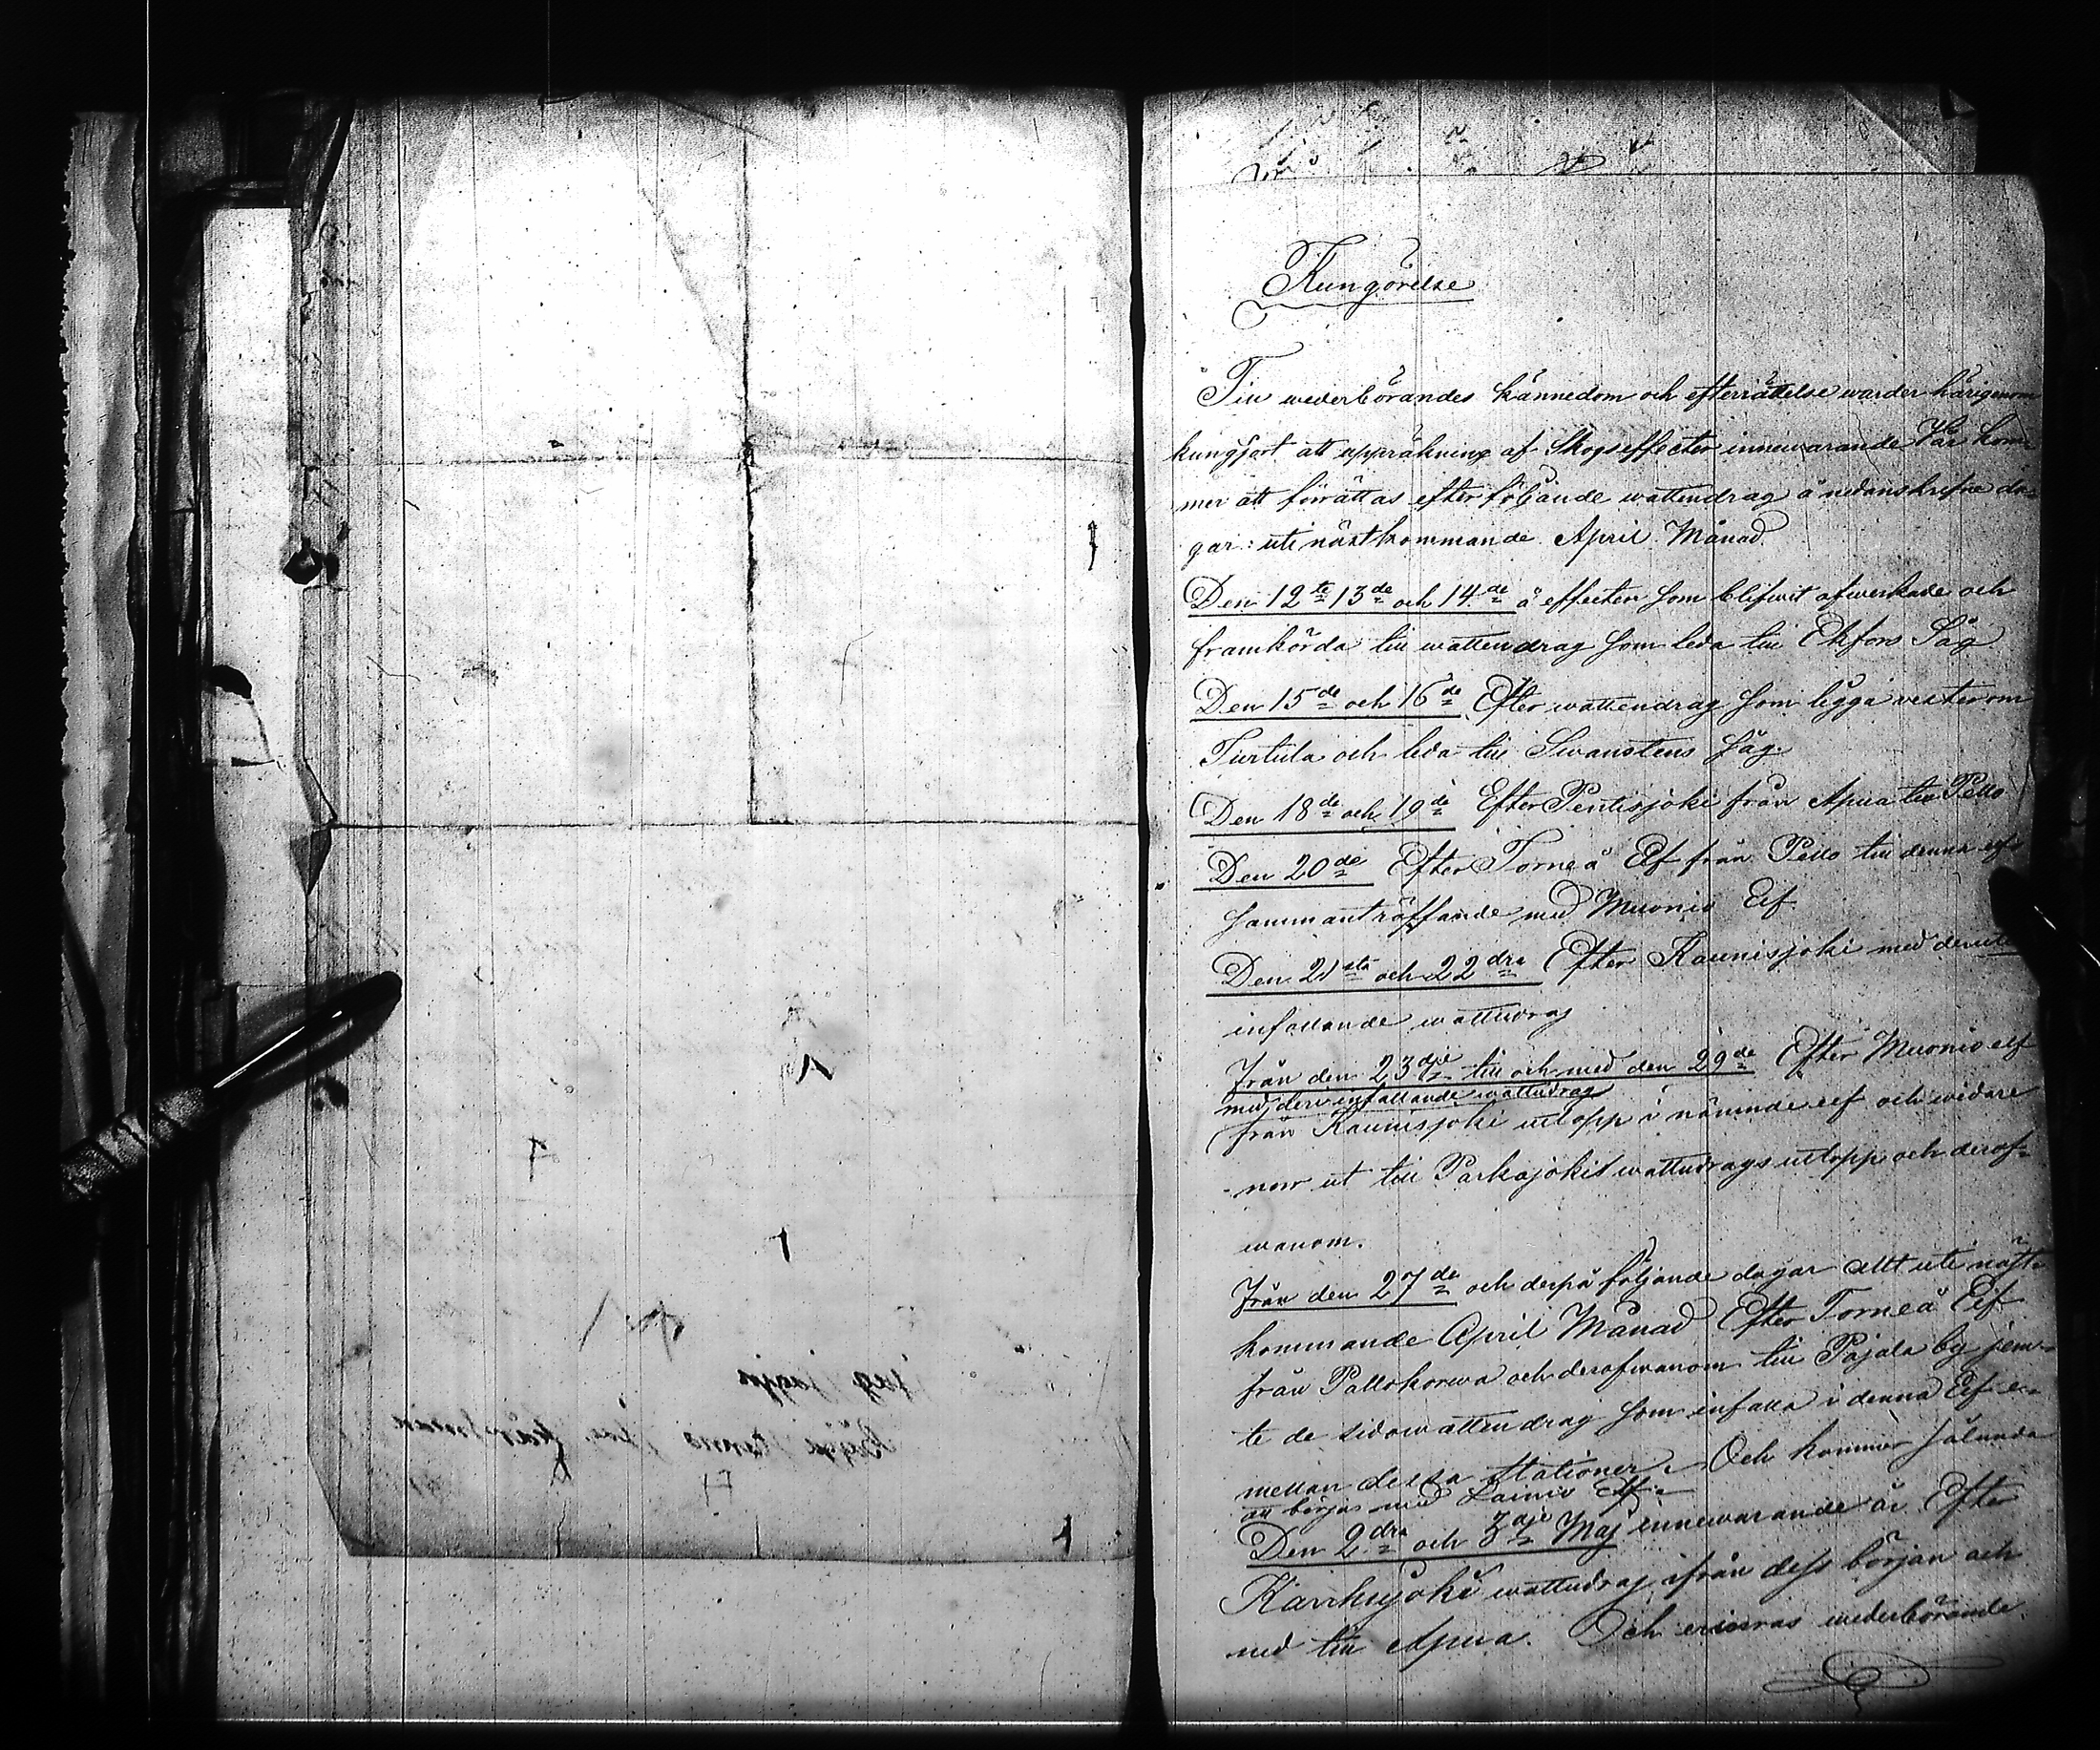 Kungörelse
Till wederbörandes kännedom och efterrättelse warder härigenom
kungjort att uppräkning af Skogseffecter innewarande Vår kom-
mer att förrättas efter följande wattendrag å nedanskrefne da-
gar: uti nästkommande April Månad.
Den 12te 13de och 14de å effecter som blifwit afwerkade och
framkörda till wattendrag som leda till Ekfors Såg
Den 15de och 16de Efter wattendrag som ligga vester om
Turtula och leda till Swanstens såg.
Den 18de och 19de Efter Pentisjoki från Apua till Pello
Den 20de Efter Torneå Elf från Pello till denna elfs
sammanträffande med Muonio Elf.
Den 21sta och 22dra Efter Kaunisjoki med deruti
infallande wattudrag
Från den 23dje till och med den 29de Efter Muonio elf
med deri infallande wattudrag
från Kaunisjoki utlopp i nämnde elf och widare
norr ut till Parkajokis wattudrags utlopp och derof-
wanom.
Från den 27de och derpå följande dagar allt uti näst-
kommande April Månad Efter Torneå Elf
från Pallokorwa och derofwanom till Pajala by jem-
te de sidowattendrag som infalla i denna Elf e-
mellan dessa stationer. Och kommer sålunda
att börjas med Lainio Elf.
Den 2dra och 3dje Maj innewarande år Efter
Karhisjoki wattudrag ifrån dess början och
ned till Apua. Och erinras wederbörande